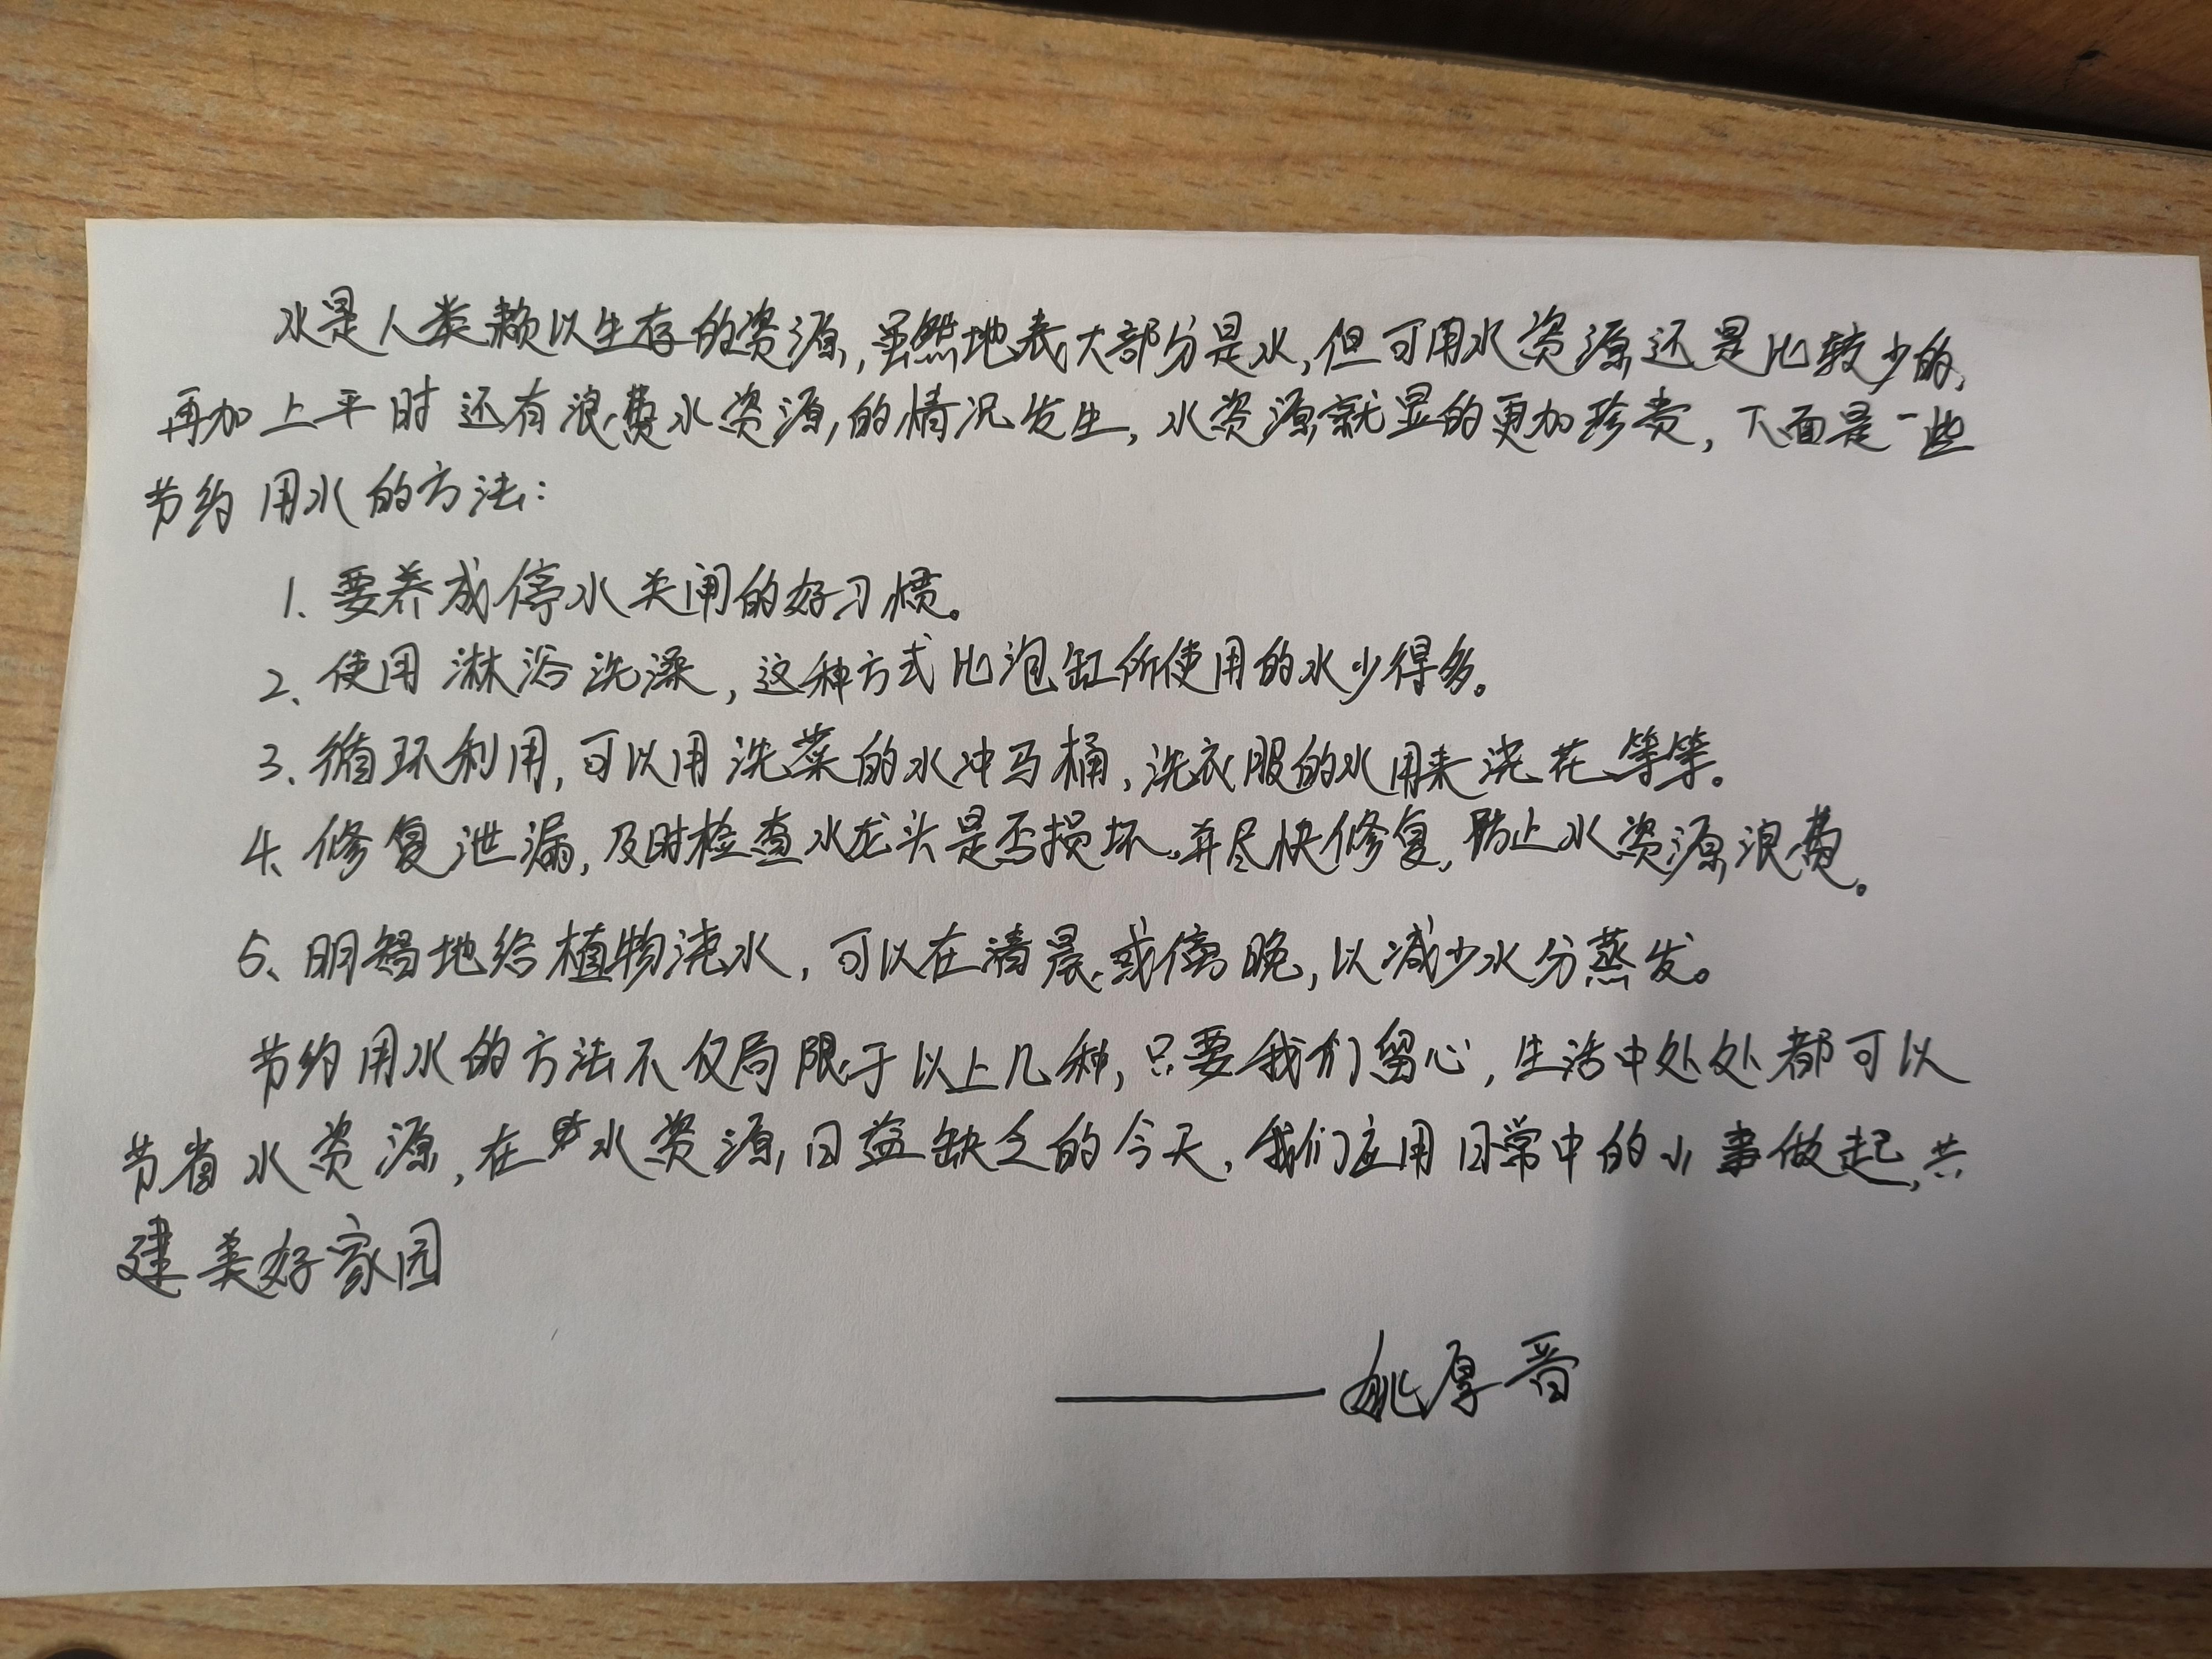 水是人类赖以生存的资源,虽然地表大部分是水,但可用水资源还是比较少的,
再加上平时还有浪费水资源的情况发生,水资源就显的更加珍贵,下面是一些
节约用水的方法:
1、要养成停水关闸的好习惯。
2、使用淋浴洗澡,这种方式比泡缸所使用的水少得多。
3、循环利用,可以用洗菜的水冲马桶,洗衣服的水用来浇花等等。
4、修复泄漏,及时检查水龙头是否损坏,并尽快修复,防止水资源浪费。
5、明智地给植物浇水,可以在清晨或傍晚,以减少水分蒸发。
节约用水的方法不仅局限于以上几种,只要我们留心,生活中处处都可以
节省水资源,在水资源日益缺乏的今天,我们应用日常中的小事做起,共
建美好家园
——姚厚晋